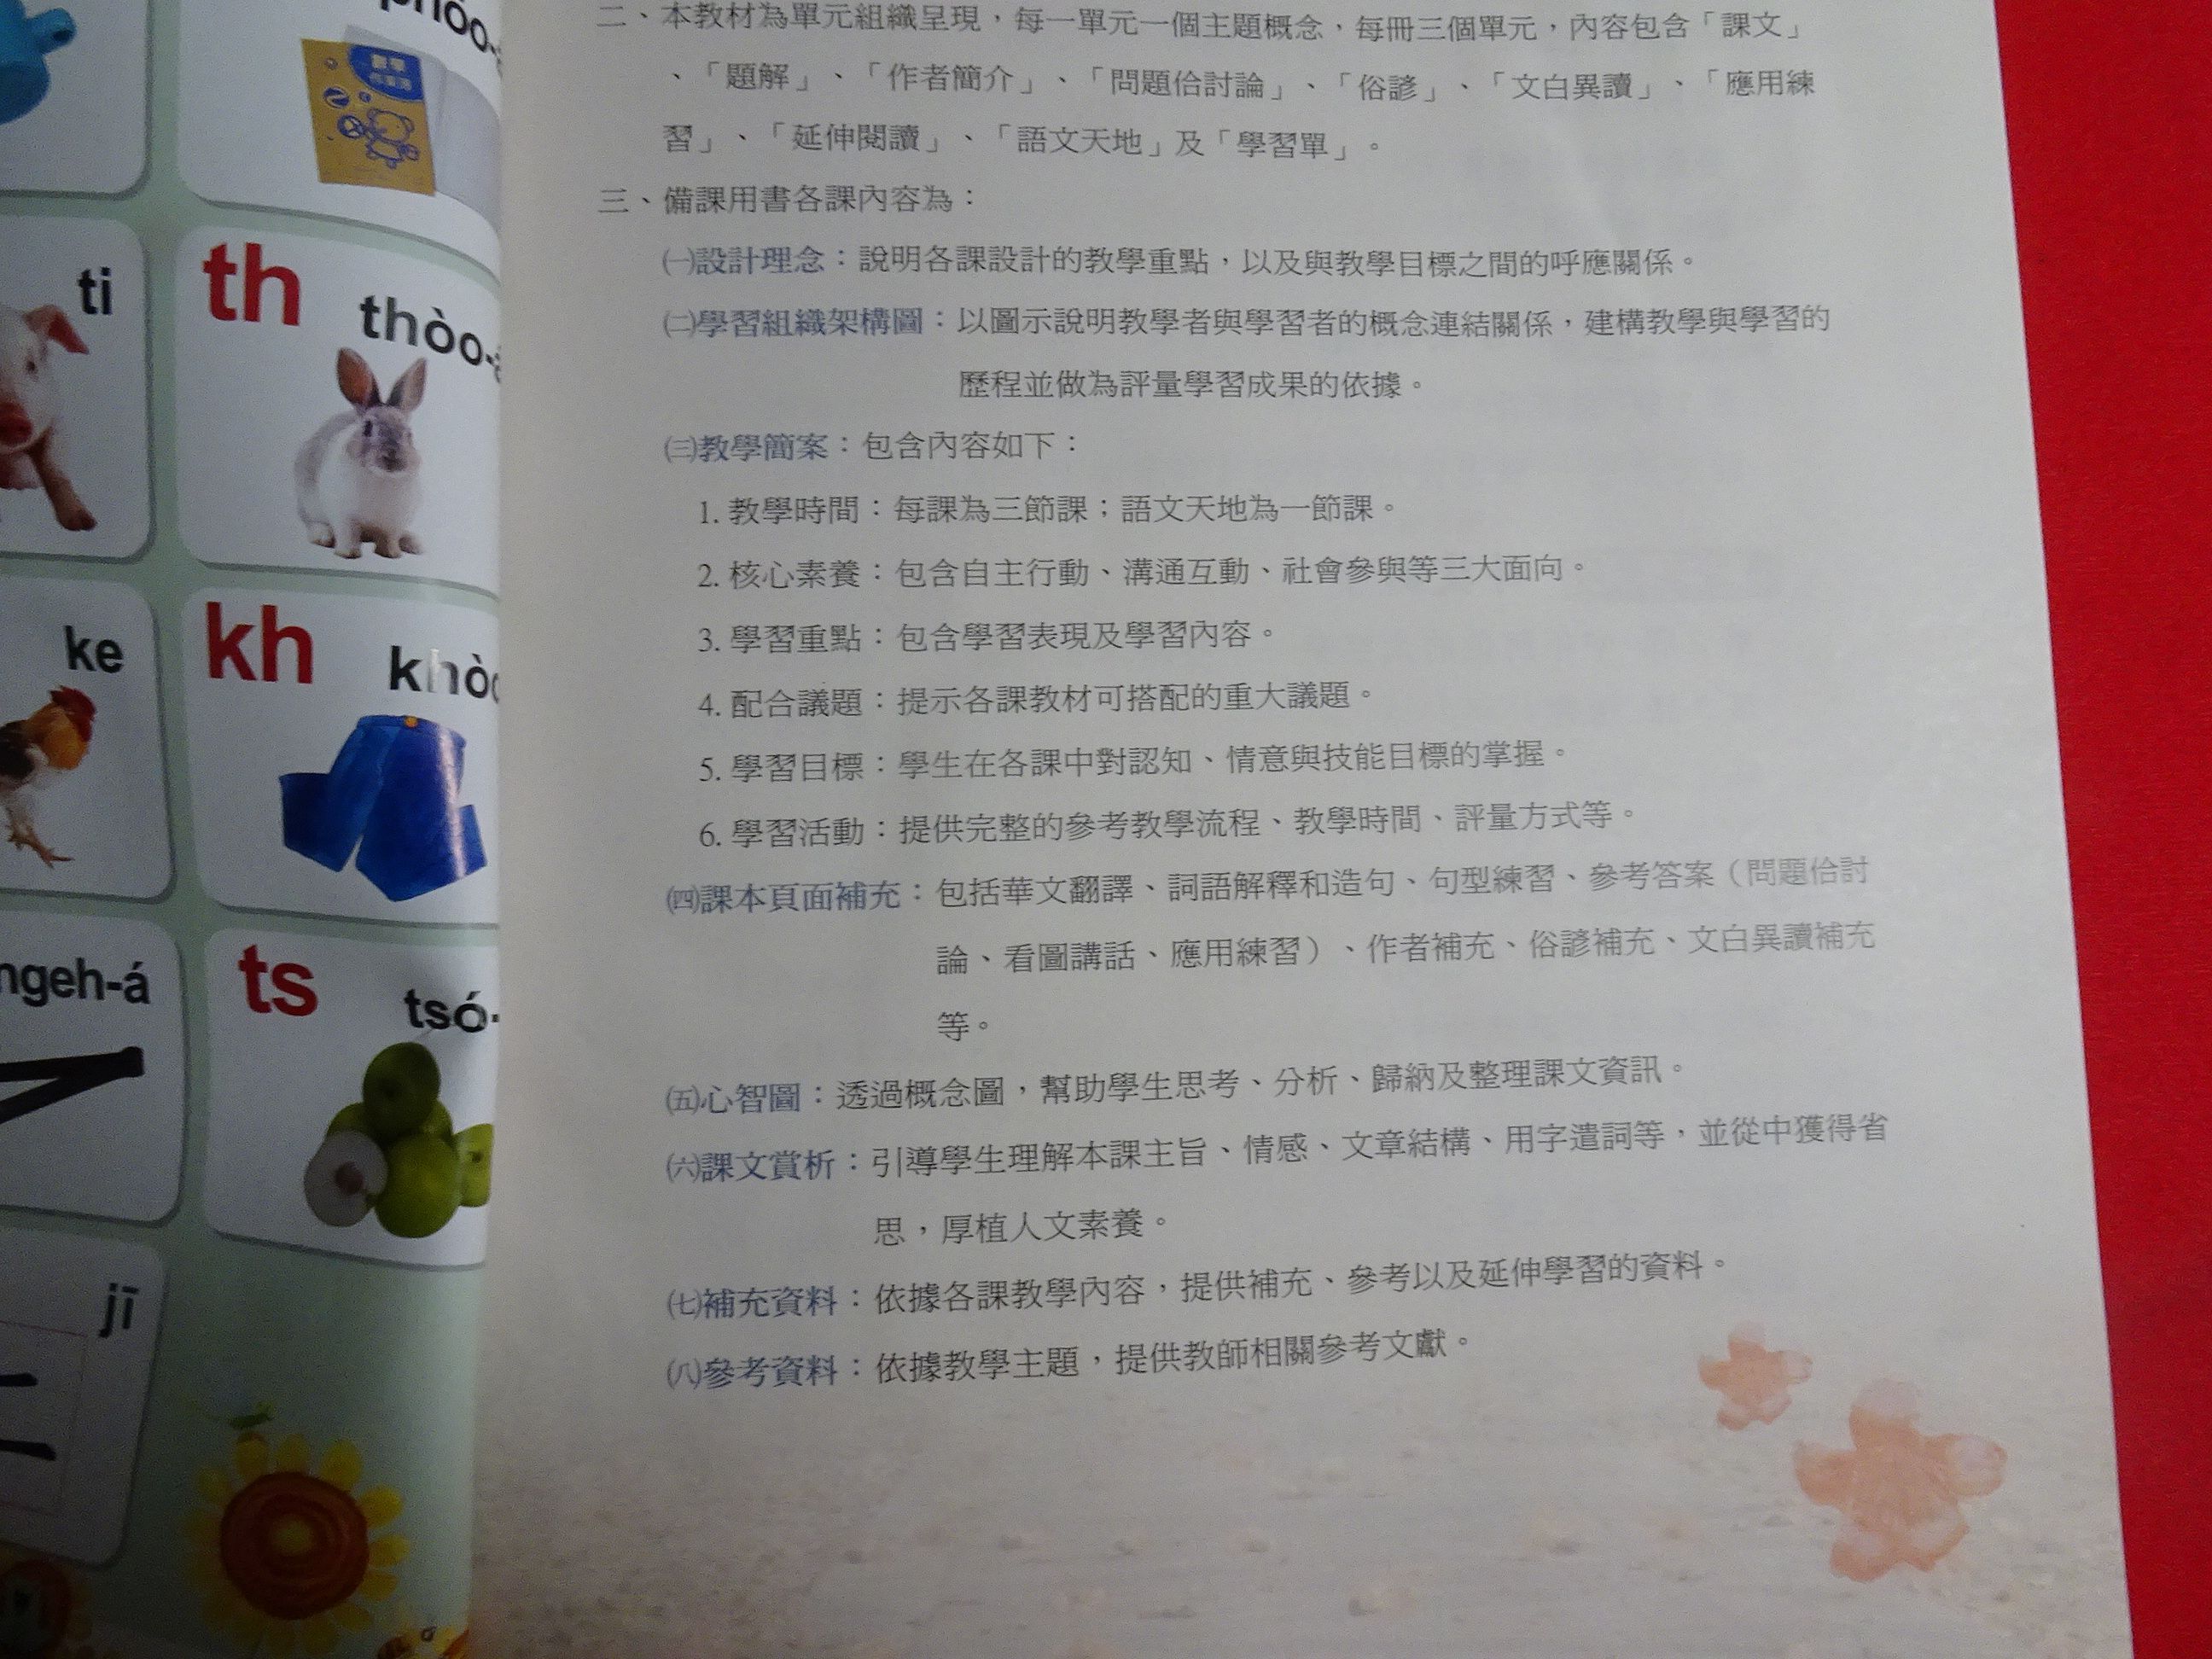 ti
th
thòo-
ke
kh
ngeh-á
ts
tsó-
jī
二、本教材為單元組織呈現，每一單元一個主題概念，每冊三個單元，內容包含「課文」
、「題解」、「作者簡介」、「問題佮討論」、「俗諺」、「文白異讀」、「應用練
習」、「延伸閱讀」、「語文天地」及「學習單」。
三、備課用書各課內容為：
㈠設計理念：說明各課設計的教學重點，以及與教學目標之間的呼應關係。
㈡學習組織架構圖：以圖示說明教學者與學習者的概念連結關係，建構教學與學習的
歷程並做為評量學習成果的依據。
㈢教學簡案：包含內容如下：
1. 教學時間：每課為三節課；語文天地為一節課。
2. 核心素養：包含自主行動、溝通互動、社會參與等三大面向。
3. 學習重點：包含學習表現及學習內容。
4. 配合議題：提示各課教材可搭配的重大議題。
5. 學習目標：學生在各課中對認知、情意與技能目標的掌握。
6. 學習活動：提供完整的參考教學流程、教學時間、評量方式等。
㈣課本頁面補充：包括華文翻譯、詞語解釋和造句、句型練習、參考答案（問題佮討
論、看圖講話、應用練習）、作者補充、俗諺補充、文白異讀補充
等。
㈤心智圖：透過概念圖，幫助學生思考、分析、歸納及整理課文資訊。
㈥課文賞析：引導學生理解本課主旨、情感、文章結構、用字遣詞等，並從中獲得省
思，厚植人文素養。
㈦補充資料：依據各課教學內容，提供補充、參考以及延伸學習的資料。
㈧參考資料：依據教學主題，提供教師相關參考文獻。